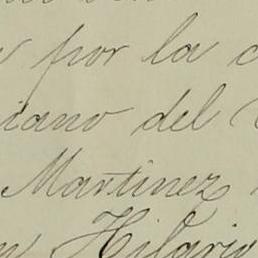 por la
iano del
Martinez
Hilario